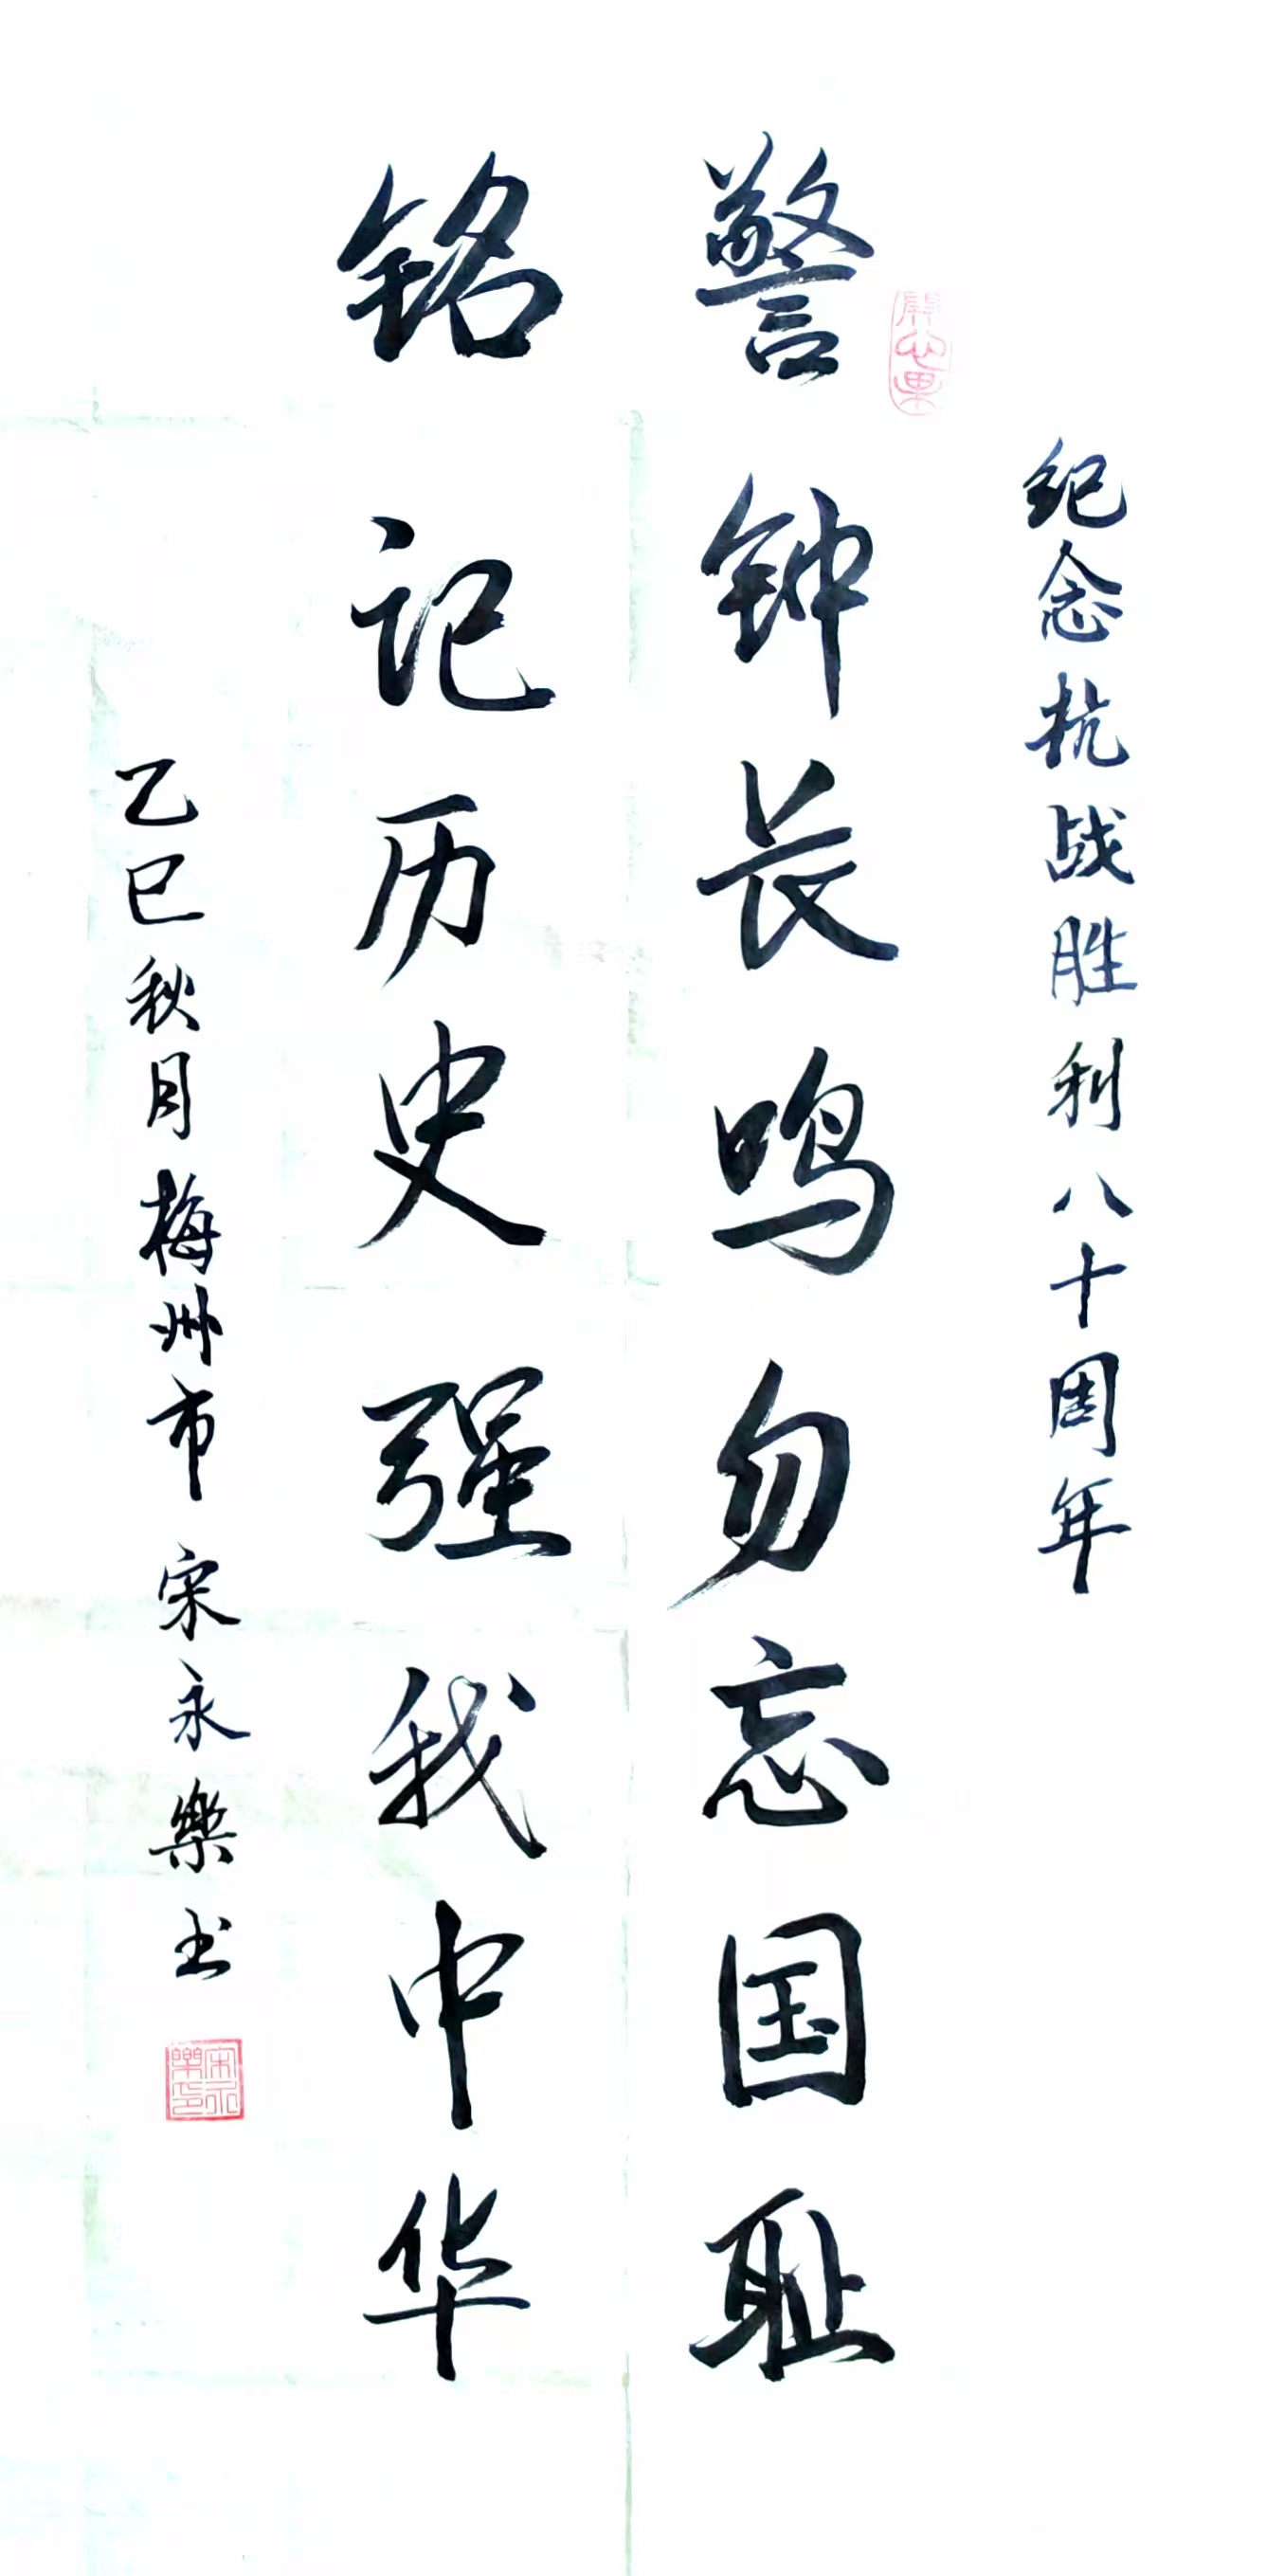 纪念抗战胜利八十周年
警钟长鸣勿忘国耻
铭记历史强我中华
乙巳秋月梅州市宋永樂书
開心果
宋永樂印